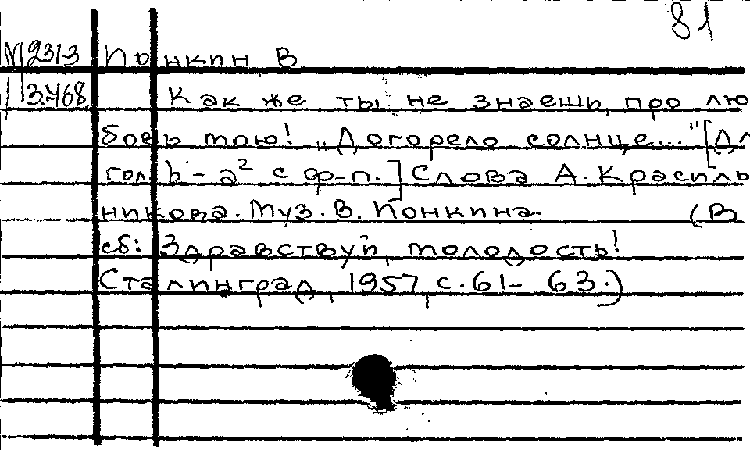 81
М 2313 Понкин В
3.468 Как же ты не знаешь про лю
бовь мою! "Догорело солнце..." [Для
гол. h - a² с ф-п.] Слова А. Красиль
никова. Муз. В. Понкина. (В
сб: Здравствуй, молодость!
Сталинград, 1957, с. 61- 63.)